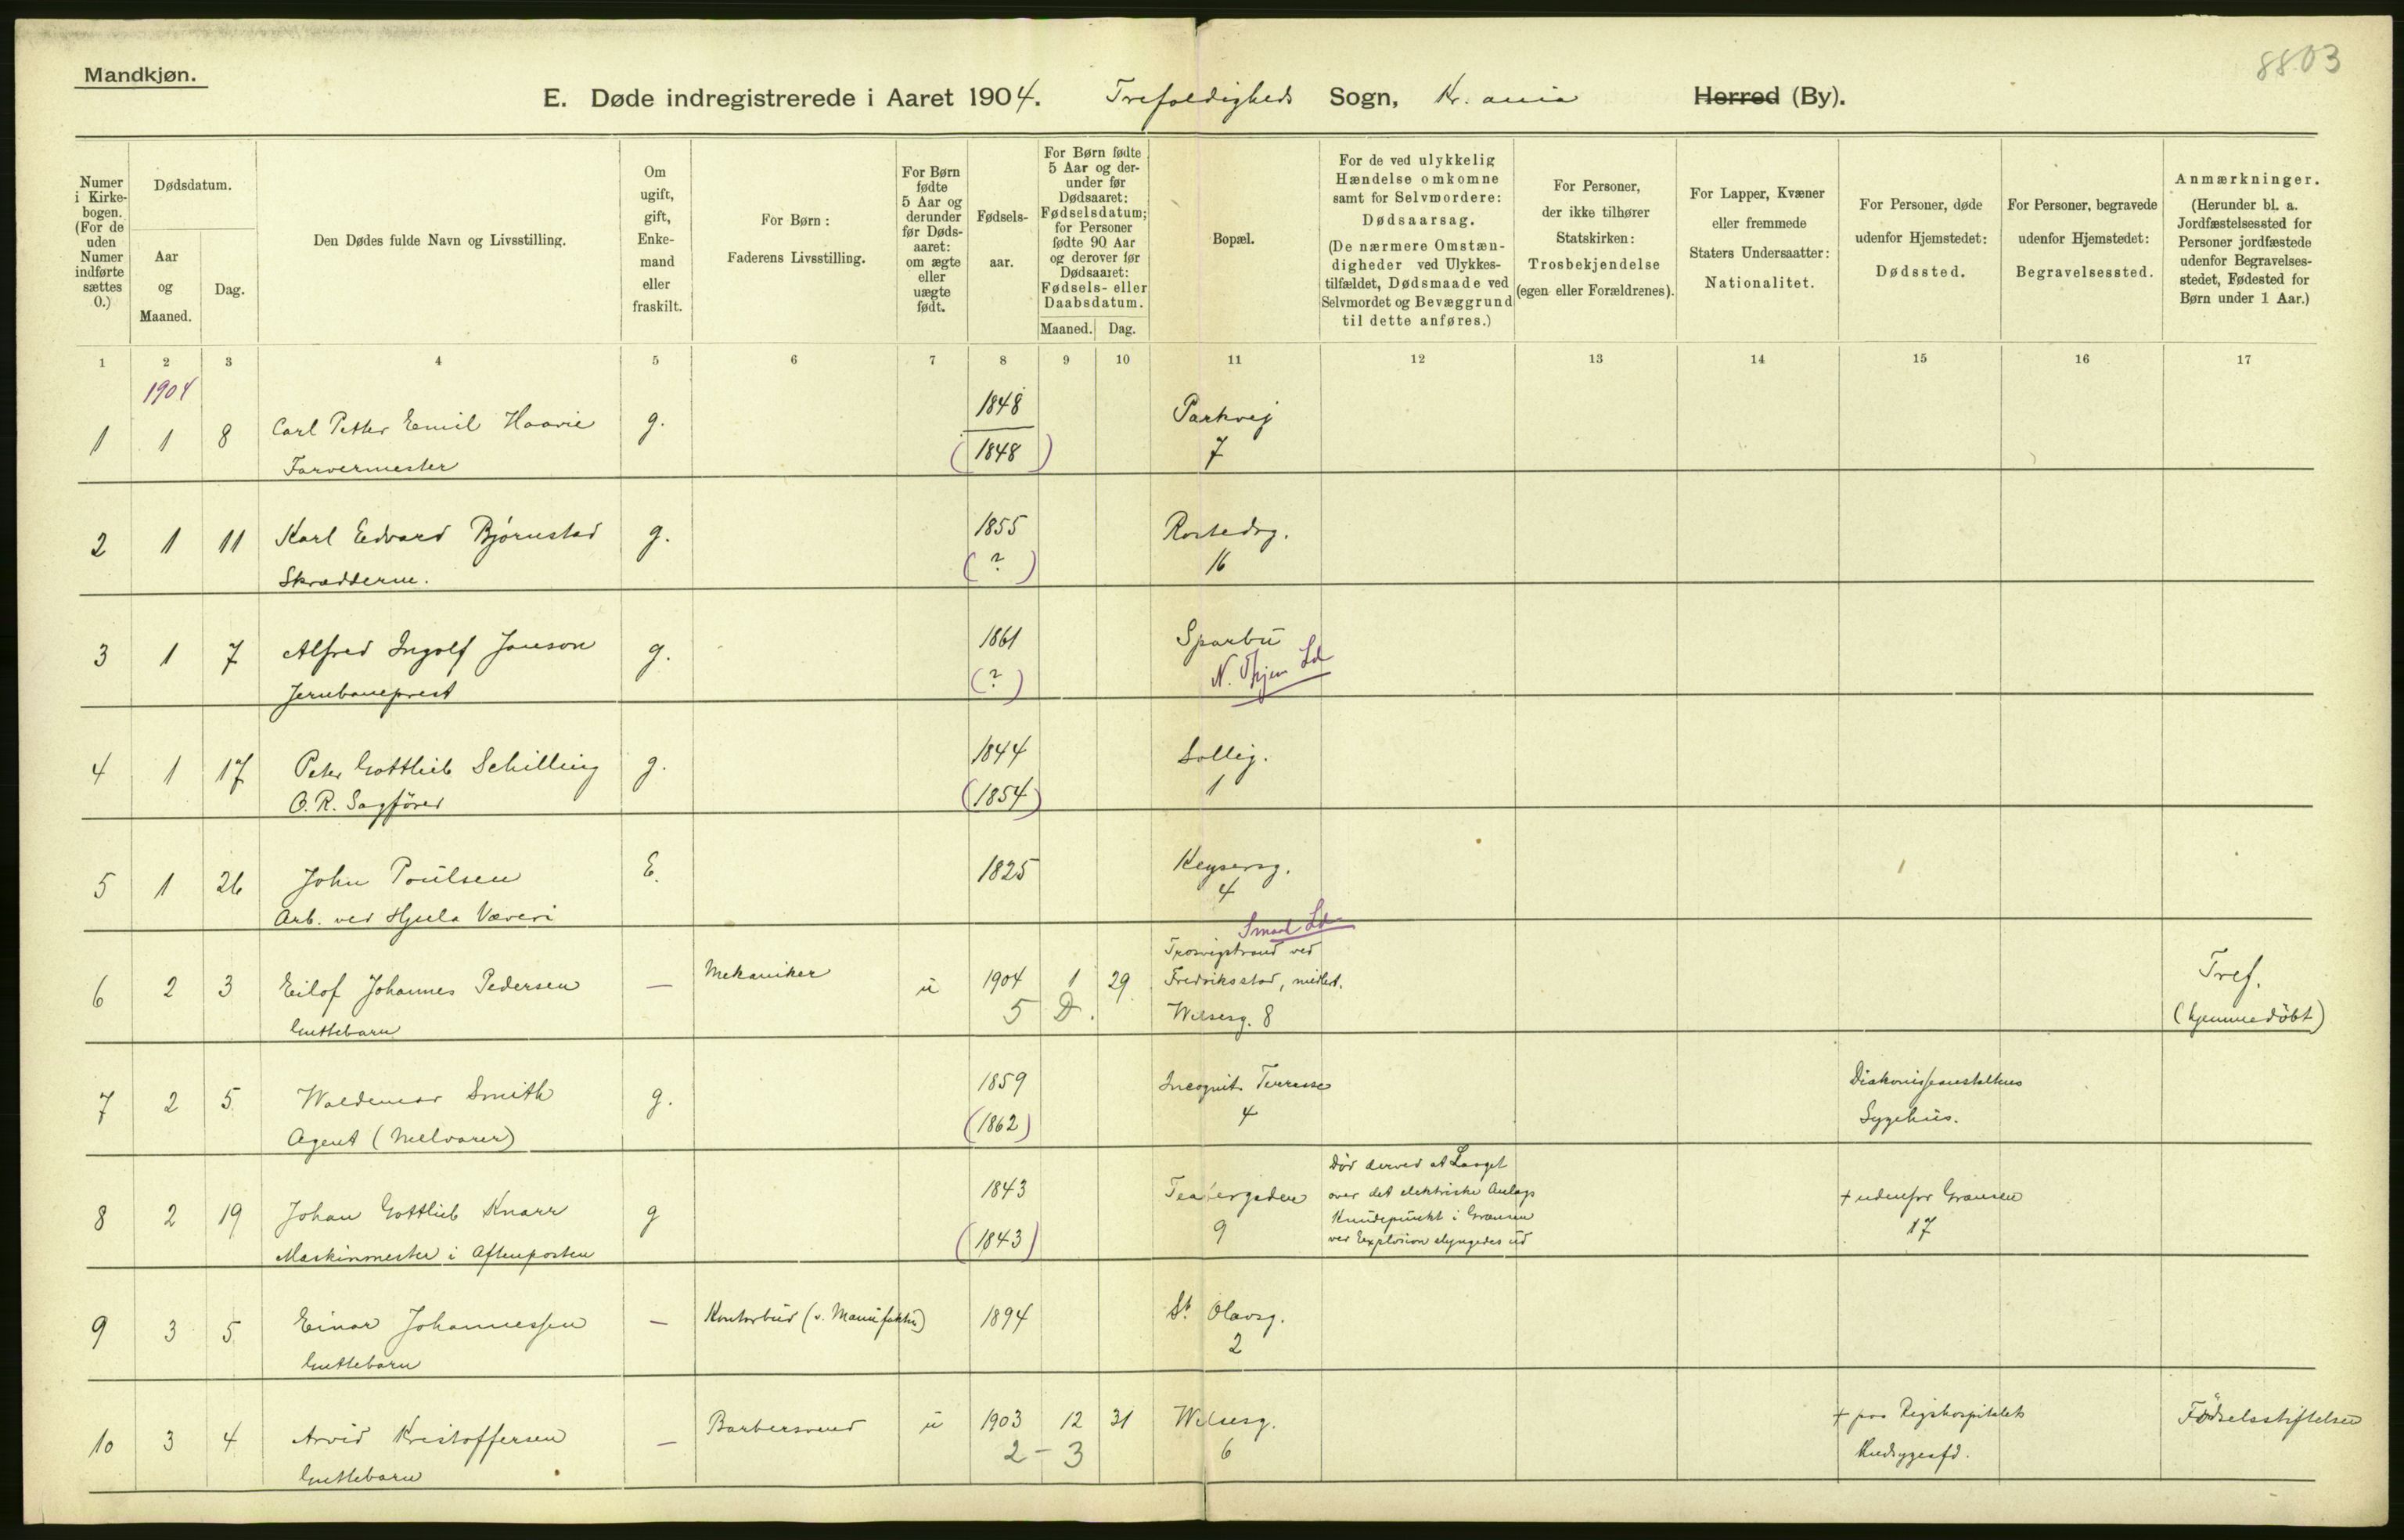 8803
Mandkjøn.
E. Døde indregistrerede i Aaret 1904. Trefoldigheds Sogn, Kr.ania Herred (By).
Numer i Kirke-bogen. (For de uden Numer indførte sættes 0.)
Dødsdatum.
Aar og Maaned.
Dag.
Den Dødes fulde Navn og Livsstilling.
Om ugift, gift, Enke-mand eller fraskilt.
For Børn: Faderens Livsstilling.
For Børn fødte 5 Aar og derunder før Døds-aaret: om ægte eller uægte født.
Fødsels-aar.
For Børn fødte 5 Aar og der-under før Dødsaaret: Fødselsdatum; for Personer fødte 90 Aar og derover før Dødsaaret: Fødsels- eller Daabsdatum.
Maaned. Dag.
Bopæl.
For de ved ulykkelig Hændelse omkomne samt for Selvmordere: Dødsaarsag. (De nærmere Omstæn-digheder ved Ulykkes-tilfældet, Dødsmaade ved Selvmordet og Bevæggrund til dette anføres.)
For Personer, der ikke tilhører Statskirken: Trosbekjendelse (egen eller Forældrenes).
For Lapper, Kvæner eller fremmede Staters Undersaatter: Nationalitet.
For Personer, døde udenfor Hjemstedet: Dødssted.
For Personer, begravede udenfor Hjemstedet: Begravelsessted.
Anmærkninger. (Herunder bl. a. Jordfæstelsessted for Personer jordfæstede udenfor Begravelses-stedet, Fødested for Børn under 1 Aar.)
1 2 3 4 5 6 7 8 9 10 11 12 13 14 15 16 17
1904
1 1 8 Carl Petter Emil Haavie g. 1848 Parkvej
Farvermester (1848) 7
2 1 11 Karl Edvard Bjørnstad g. 1855 Rostedsg.
Skrædderm. (?) 16
3 1 7 Alfred Ingolf Janson g. 1861 Sparbu
Jernbaneprest (?) N. Thjem Ld
4 1 17 Peter Gottlieb Schilling g. 1844 Sollig.
O.R. Sagfører (1854) 1
5 1 26 John Poulsen E. 1825 Keysersg.
Arb. ved Hjula Væveri 4
Smaal Ld
Trosvigstrand ved
6 2 3 Eilof Johannes Pedersen — Mekaniker u 1904 1 29 Fredriksstad, midlert. Tref.
Guttebarn 5 D. Welsesg. 8 (hjemmedøbt)
7 2 5 Waldemar Smith g. 1859 Incognit. Terrasse 4 Diakonisseanstaltens
Agent (Melvarer) (1862) Sygehus.
Død derved at Laaget
8 2 19 Johan Gottlieb Knarr g 1843 Teatergaden over det elektriske Anlægs + udenfor Grænsen
(1843) 9 Knudepunkt i Grænsen 17
Maskinmester i Aftenposten ved Explosion slyngedes ud
9 3 5 Einar Johannessen — Kontorbud (v. Manufaktur) 1894 St. Olavsg.
Guttebarn 2
10 3 4 Arvid Kristoffersen — Barbersvend u 1903 12 31 Welsesg. + paa Rigshospitalets Fødselsstiftelsen
Guttebarn 2 - 3 6